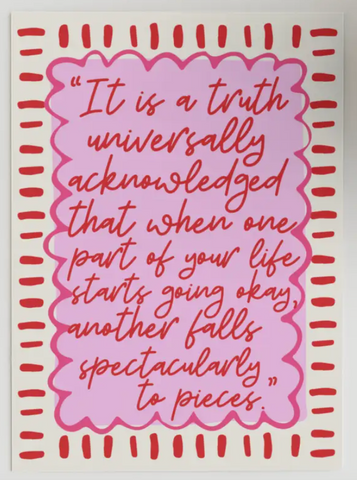 "It is a truth
universally
acknowledged
that when one
part of your life
starts going okay,
another falls
spectacularly
to pieces."